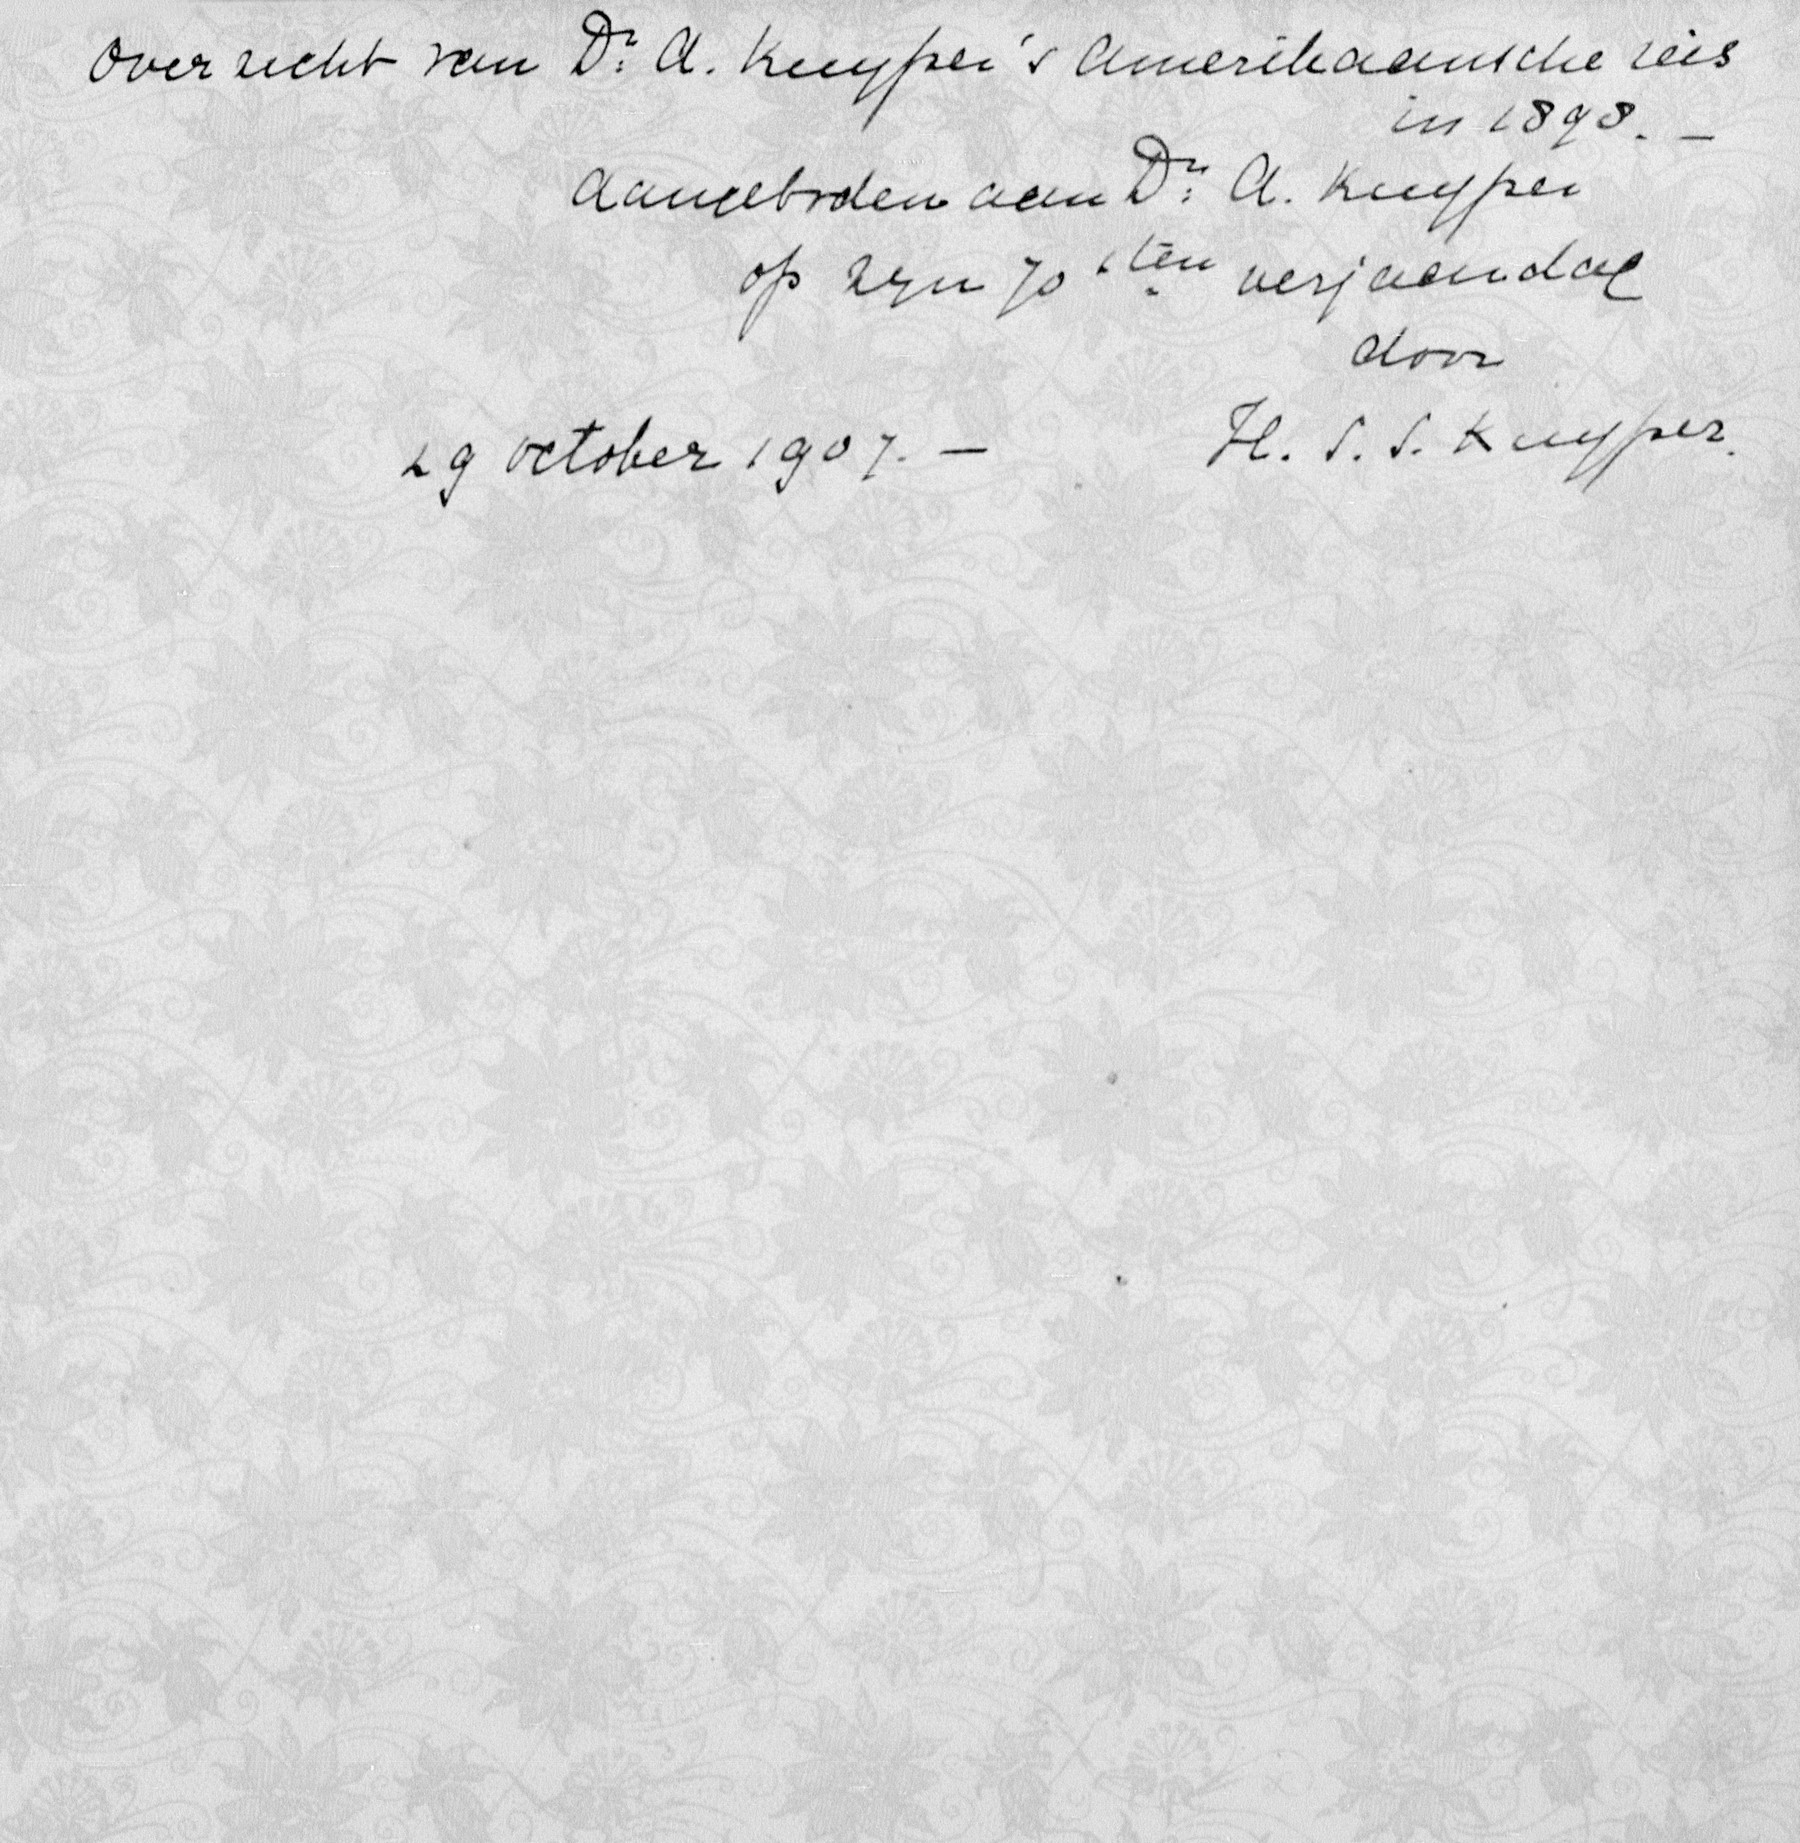 Overzicht van Dr. A. Kuyper's Amerikaansche reis
in 1898. —
Aangeboden aan Dr. A. Kuyper
op zyn 70sten verjaardag
door
29 october 1907. — H. S. S. Kuyper.